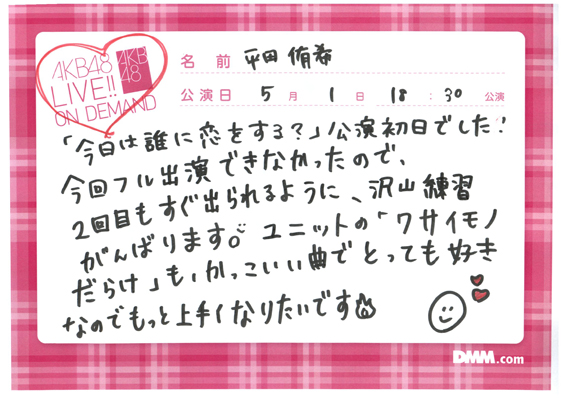 AKB48
LIVE!!
ON DEMAND
AKB
48
名前 平田侑希
公演日 5月1日 18:30公演
「今日は誰に恋をする？」公演初日でした！
今回フル出演できなかったので、
2回目もすぐ出られるように、沢山練習
がんばります。ユニットの「ワサイモノ
だらけ」も、かっこいい曲でとっても好き
なのでもっと上手くなりたいです
DMM.com